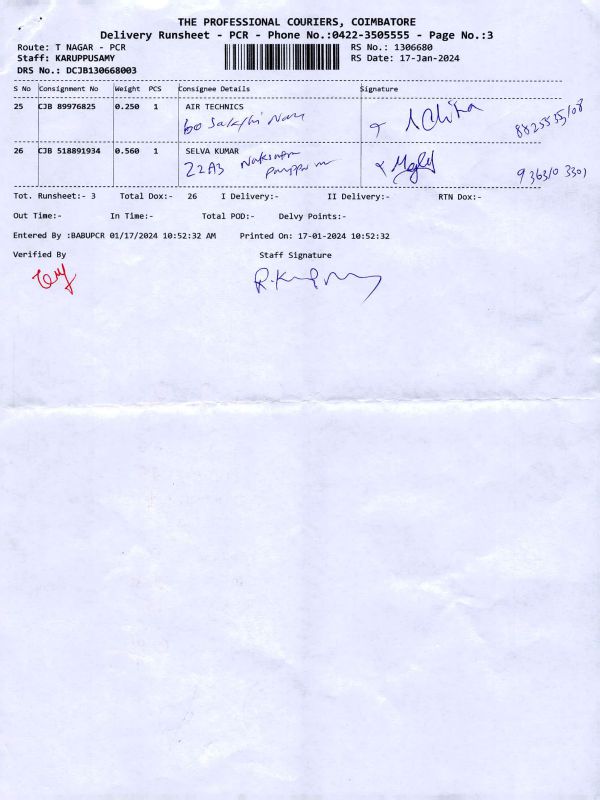 THE PROFESSIONAL COURIERS, COIMBATORE
Delivery Runsheet - PCR - Phone No.:0422-3505555 - Page No.:3
Route: T NAGAR - PCR RS No.: 1306680
Staff: KARUPPUSAMY RS Date: 17-Jan-2024
DRS No.: DCJB130668003
S No Consignment No Weight PCS Consignee Details Signature
25 CJB 89976825 0.250 1 AIR TECHNICS
60
26 CJB 518891934 0.560 1 SELVA KUMAR
22A3
Tot. Runsheet:- 3 Total Dox:- 26 I Delivery:- II Delivery:- RTN Dox:-
Out Time:- In Time:- Total POD:- Delvy Points:-
Entered By :BABUPCR 01/17/2024 10:52:32 AM Printed On: 17-01-2024 10:52:32
Verified By Staff Signature